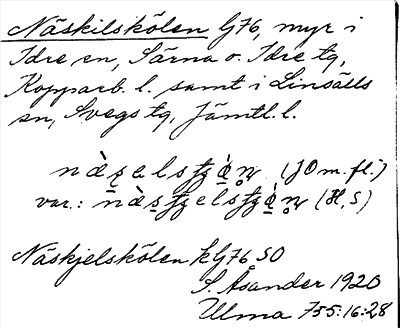 Näskilskölen G76, myr i
Idre sn, Särna o. Idre tg,
Kopparb. l. samt i Linsälls
sn, Svegs tg, Jämtl. l.
(JÖ m. fl.)
var.: (H, S)
Näskjelskölen kG76 SO
S. Åsander 1920
Ulma 755:16:28